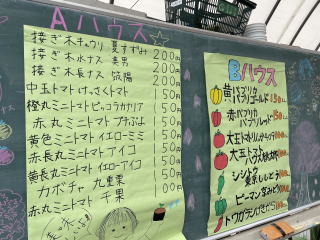 Aハウス
接ぎ木キュウリ 夏すずみ 200円
接ぎ木水ナス 美男 200円
接ぎ木長ナス 筑陽 200円
中玉トマト けっさくトマト 150円
橙丸ミニトマト ピッコラカナリア 150円
赤丸ミニトマト プチぷよ 150円
黄色ミニトマト イエローミミ 150円
赤長丸ミニトマト アイコ 150円
黄長丸ミニトマト イエローアイコ 150円
カボチャ 九重栗 100円
赤丸ミニトマト 千果 100円
Bハウス
黄パプリカ
ゴールド 150
赤パプリカ
レッド 150
大玉トマト
大玉トマト
シシトウ
ピーマン
トウガラシ